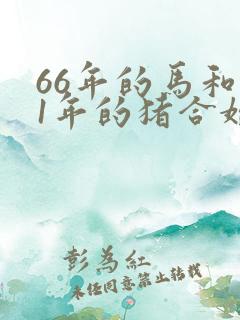 66年的馬和
1年的猪合婚
彭為紅
未经同意禁止转载